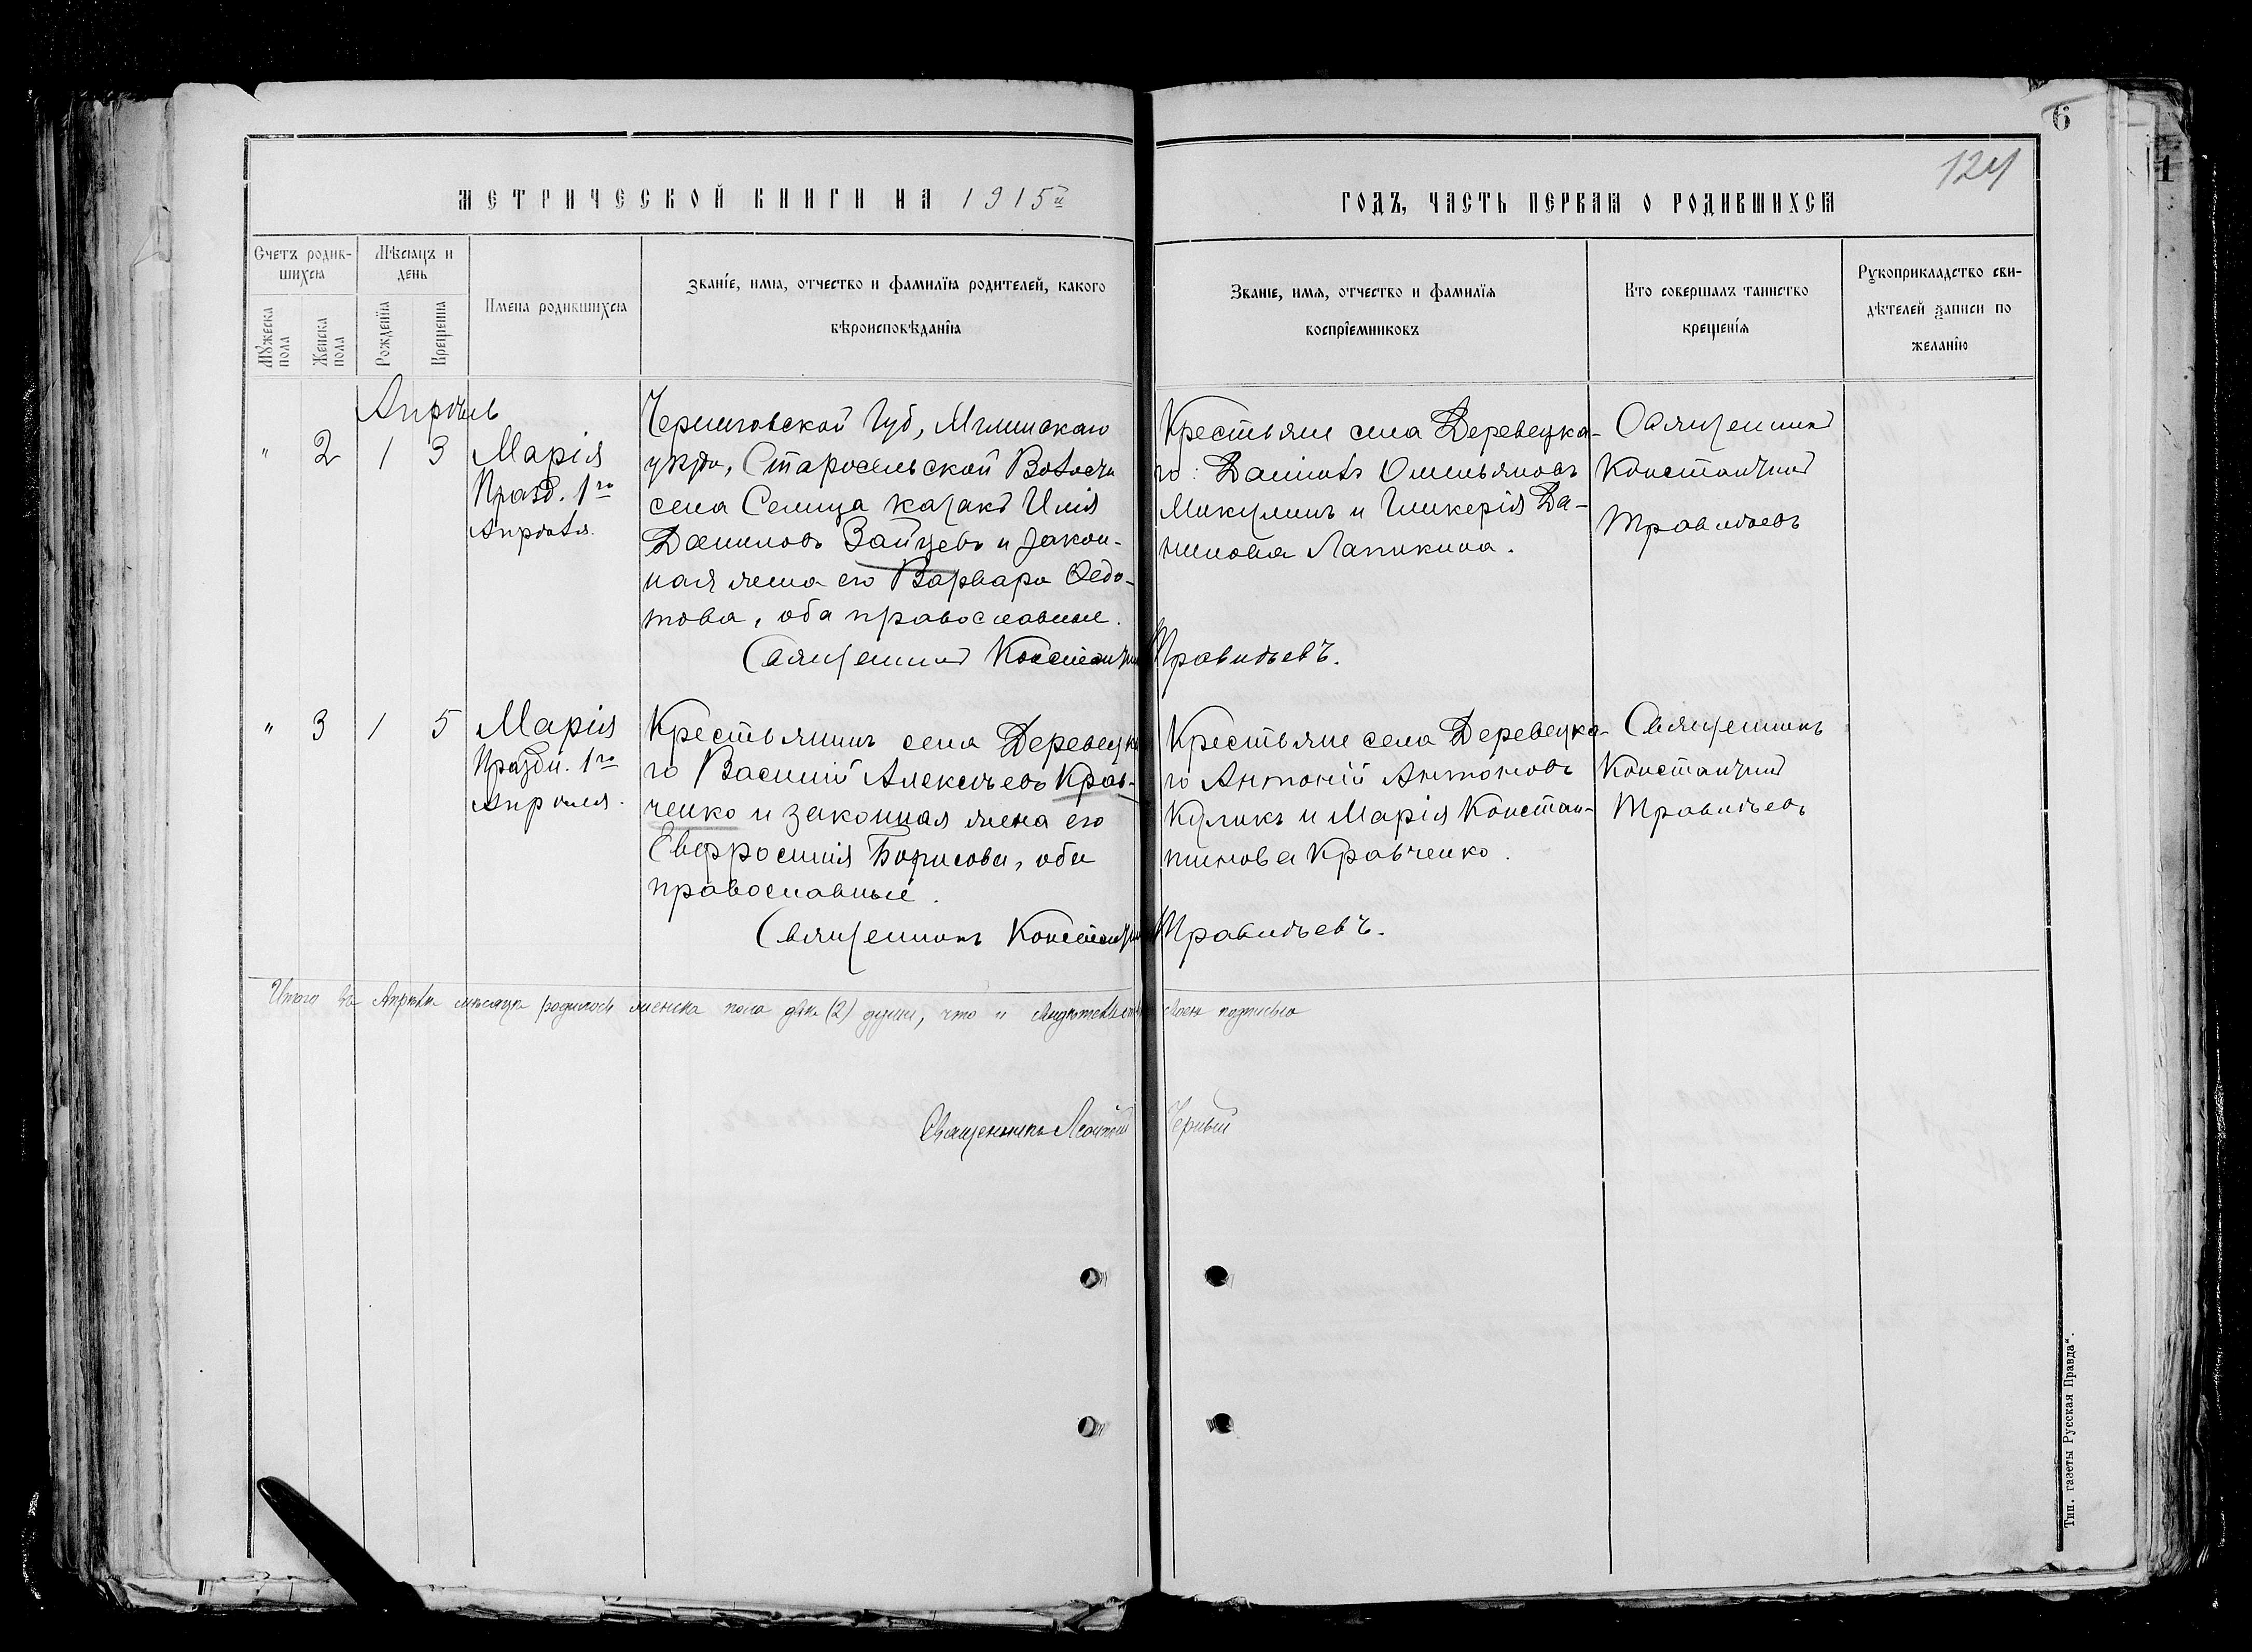 6
124
1
МЕТРИЧЕСКОЙ КНИГИ НА 1915й
ГОДЪ, ЧАСТЬ ПЕРВАЯ О РОДИВШИХСЯ
Счетъ родив-
шихся
Мѣсяцъ и
день
Мужеска
пола
Женска
пола
Рожденія
Крещенія
Имена родившихся
Званіе, имя, отчество и фамилія родителей, какого
вѣроисповѣданія
Званіе, имя, отчество и фамилія
воспріемниковъ
Кто совершалъ таинство
крещенія
Рукоприкладство сви-
дѣтелей записи по
желанію
Апрѣль
" 2 1 3
Марія
Празд. 1го
Апрѣля.
Черниговской Губ, Мглинскаго
уѣзда, Старосельской Волости
села Селища казакъ Илія
Даниловъ Зайцевъ и закон-
ная жена его Варвара Ѳедо-
това, оба православные.
Крестьяне села Деревецка-
го: Даніилъ Омельяновъ
Микулинъ и Гликерія Да-
нилова Лапикина.
Священникъ
Константинъ
Правдѣевъ
Священникъ Константинъ Правдѣевъ.
" 3 1 5
Марія
Праздн. 1го
Апрѣля.
Крестьянинъ села Деревецка
го Василій Алексѣевъ Крав-
ченко и законная жена его
Евфросинія Борисова, оба
православные.
Крестьяне села Деревецка-
го Антоній Антоновъ
Куликъ и Марія Констан-
тинова Кравченко.
Священникъ
Константинъ
Правдѣевъ
Священникъ Константинъ Правдѣевъ.
Итого за Апрѣль мѣсяцъ родилось женска пола двѣ (2) души, что и свидѣтельствую своею подписью
Священникъ Леонтій Черный
Тип. газеты Русская Правда“.